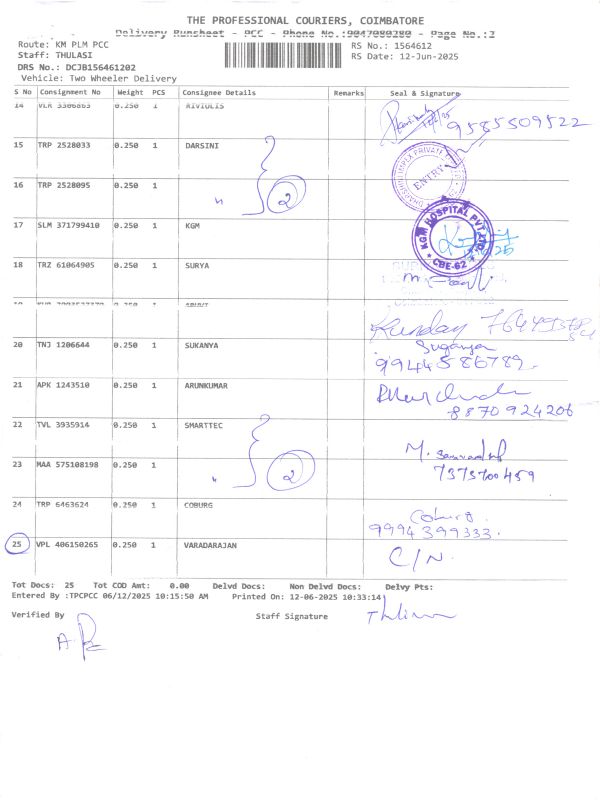 THE PROFESSIONAL COURIERS, COIMBATORE
Delivery Runsheet - PCC - Phone No.:9047080280 - Page No.:2
Route: KM PLM PCC
RS No.: 1564612
Staff: THULASI
RS Date: 12-Jun-2025
DRS No.: DCJB156461202
Vehicle: Two Wheeler Delivery
S No Consignment No Weight PCS Consignee Details Remarks Seal & Signature
14 VLR 3306863 0.250 1 RIVIULIS 9585509522
15 TRP 2528033 0.250 1 DARSINI
ENTRY
16 TRP 2528095 0.250 1 " 2
17 SLM 371799410 0.250 1 KGM
KGM HOSPITAL PVT LTD
CBE-62
18 TRZ 61064905 0.250 1 SURYA
20 TNJ 1206644 0.250 1 SUKANYA
9944586789
21 APK 1243510 0.250 1 ARUNKUMAR
8870924206
22 TVL 3935914 0.250 1 SMARTTEC
23 MAA 575108198 0.250 1 " 2
7373700459
24 TRP 6463624 0.250 1 COBURG
Coburg
9994399333
25 VPL 406150265 0.250 1 VARADARAJAN C/N
Tot Docs: 25 Tot COD Amt: 0.00 Delvd Docs: Non Delvd Docs: Delvy Pts:
Entered By :TPCPCC 06/12/2025 10:15:50 AM Printed On: 12-06-2025 10:33:14
Verified By
Staff Signature